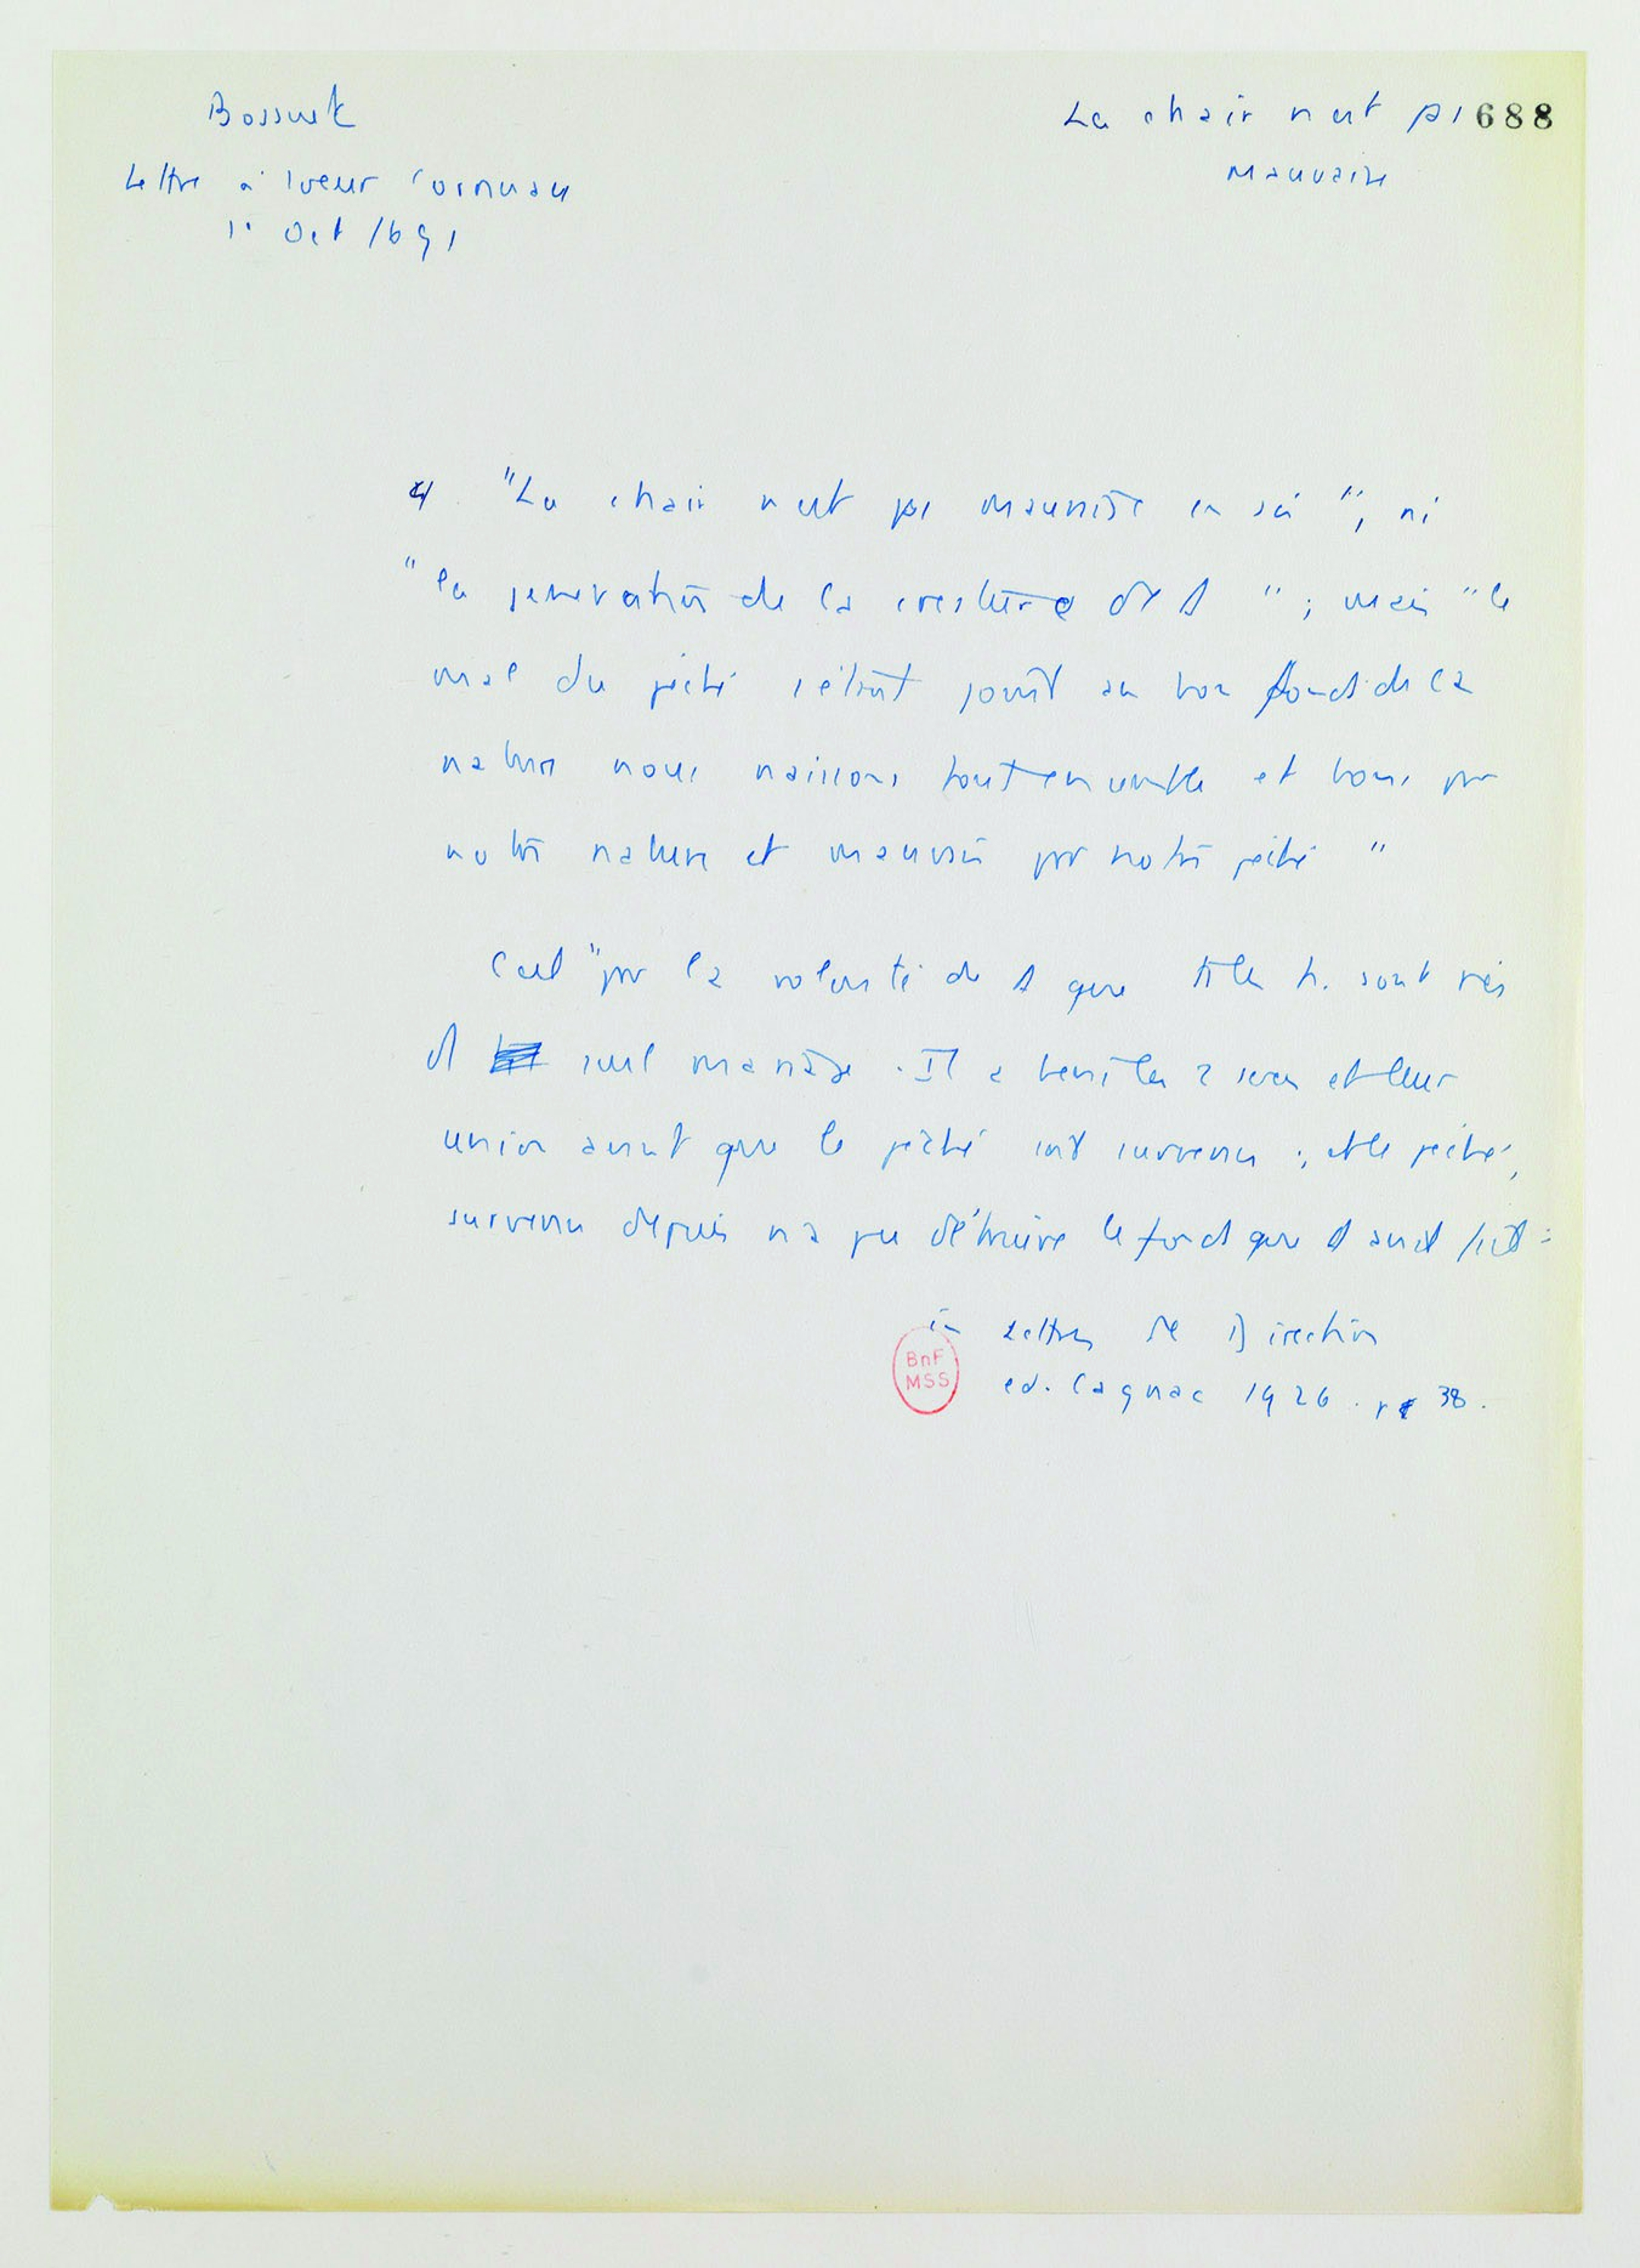 Bossuet
Lettre à soeur Cornuau
1° Oct 1691
La chair n'est pas 688
mauvaise
"La chair n'est pas mauvaise en soi", ni
"la generation de la creature de"; mais "le
mal du péché s'étant joint au bon fond de la
nature nous naissons tout ensemble et bons par
notre nature et mauvais par notre péché"
C'est "par la volonté de Δ que ts les h. sont nés
d' seul mariage. Il a beni les 2 sexes et leur
union avant que le péché soit survenu ; et le péché,
survenu depuis n'a pu détruire le fond que Δ avait fait :
in Lettres de Direction
BnF
MSS
ed. Cagnac 1926. p 38.